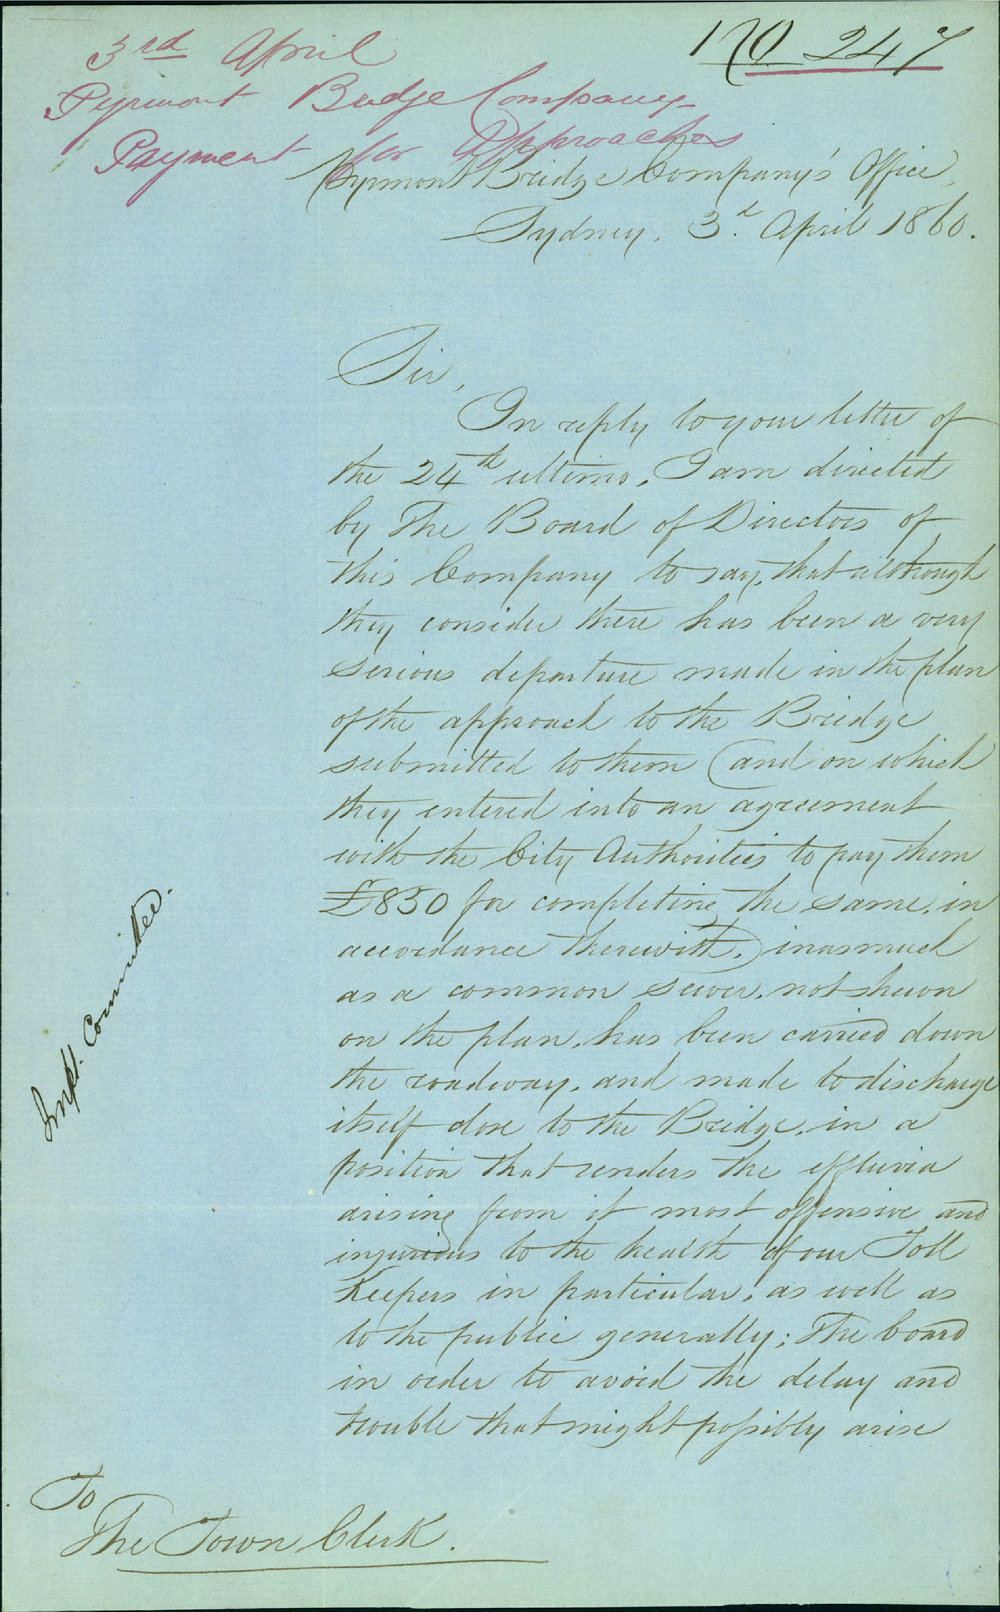 No 247
3rd April
Pyrmont Bridge Company
Payment for Approaches
Pyrmont Bridge Company's Office,
Sydney, 3d. April 1860.
Sir,
In reply to your letter of
the 24th ultimo, I am directed
by The Board of Directors of
this Company to say, that although
they consider there has been a very
serious departure made in the plan
of the approach to the Bridge
submitted to them (and on which
they entered into an agreement
with the City Authorities to pay them
£850 for completing the same, in
accordance therewith,) inasmuch
as a common sewer, not shewn
on the plan, has been carried down
the roadway, and made to discharge
itself close to the Bridge, in a
position that renders the effluvia
arising from it most offensive and
injurious to the health of our Toll
Keepers in particular, as well as
to the public generally; The board
in order to avoid the delay and
trouble that might possibly arise
Impt. Committee.
To
The Town Clerk.